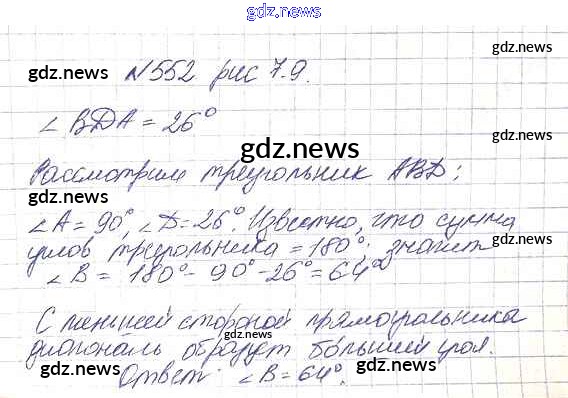 gdz.news
gdz.news
gdz.news N552 рис 7.9.
∠BDA = 26°
gdz.news
gdz.news
Рассмотрим треугольник ABD:
∠A = 90°, ∠D = 26°. Известно, что сумма
углов треугольника = 180°. значит
∠B = 180° - 90° - 26° = 64°
gdz.news
gdz.news
gdz.news
С меньшей стороной прямоугольника
диагональ образует больший угол.
gdz.news
Ответ: ∠B = 64°.
gdz.news
gdz.news